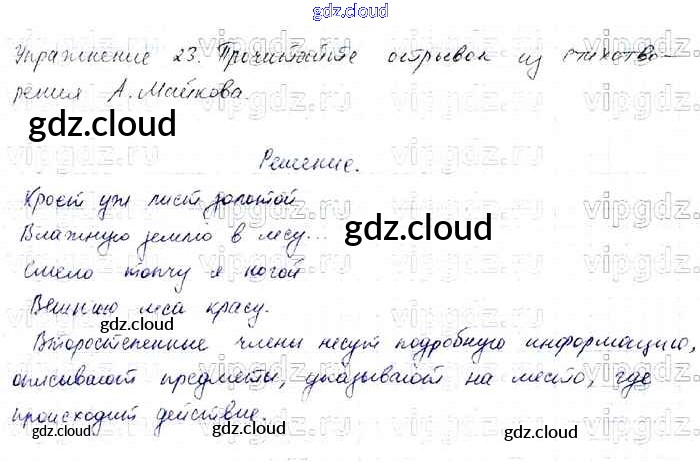 gdz.cloud
Упражнение 23. Прочитайте отрывок из стихотво-
рения А. Майкова.
gdz.cloud
Решение.
Кроет уж лист золотой
Влажную землю в лесу...
gdz.cloud
Смело топчу я ногой
Вешнюю леса красу.
gdz.cloud
gdz.cloud
Второстепенные члены несут подробную информацию,
описывают предметы, указывают на место, где
происходит действие.
gdz.cloud
gdz.cloud
gdz.cloud